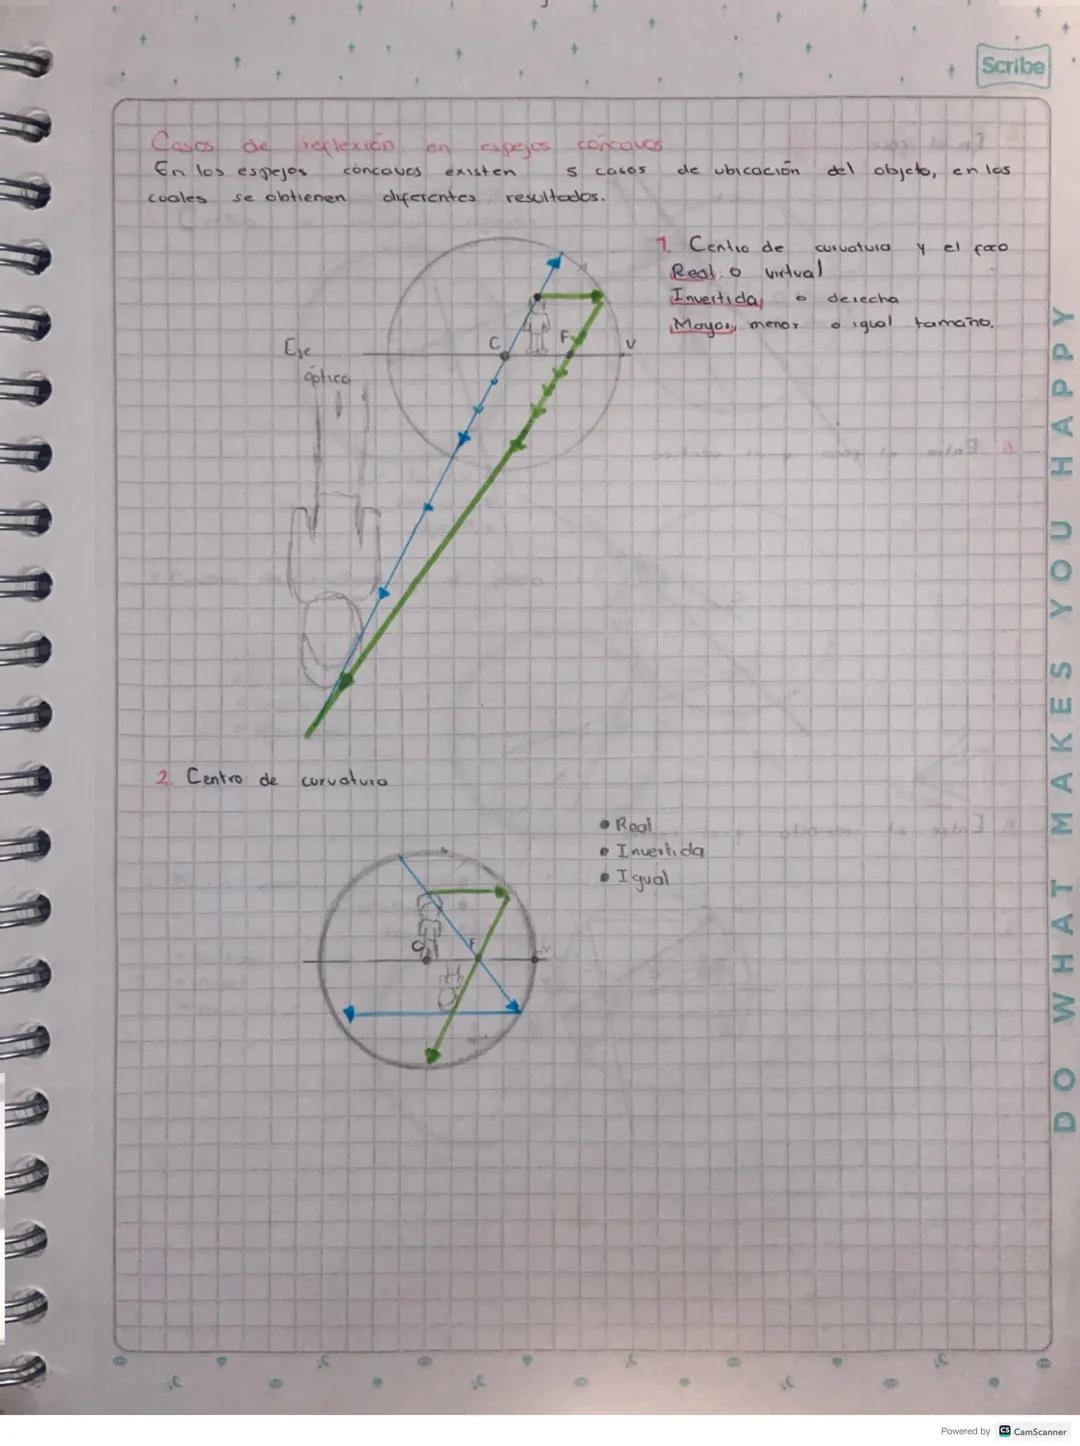 Scribe
Casos de reflexión en espejos cóncavos
En los espejos cóncavos existen 5 casos de ubicación del objeto, en los
cuales se obtienen diferentes resultados.
1. Centro de curvatura y el foco
Real o virtual
Invertida o derecha
Mayor, menor o igual tamaño.
C F V
Eje
óptico
2. Centro de curvatura
• Real
• Invertida
• Igual
C F V
DO WHAT MAKES YOU HAPPY
Powered by CS CamScanner